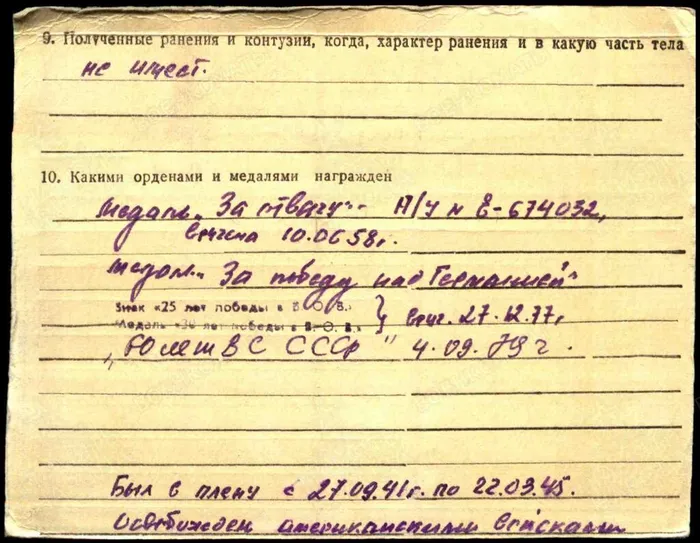 9. Полученные ранения и контузии, когда, характер ранения и в какую часть тела
не имеет.
10. Какими орденами и медалями награжден
Медаль „За отвагу" А/у № Е-674032,
вручена 10.06 58г.
Медаль „За победу над Германией"
Знак «25 лет победы в В. О. В.»
Медаль «30 лет победы в В. О. В.» } вруч. 27.12.77г.
„60 лет ВС СССР" 4.09.79г.
Был в плену с 27.09.41г. по 22.03.45.
Освобожден американскими войсками